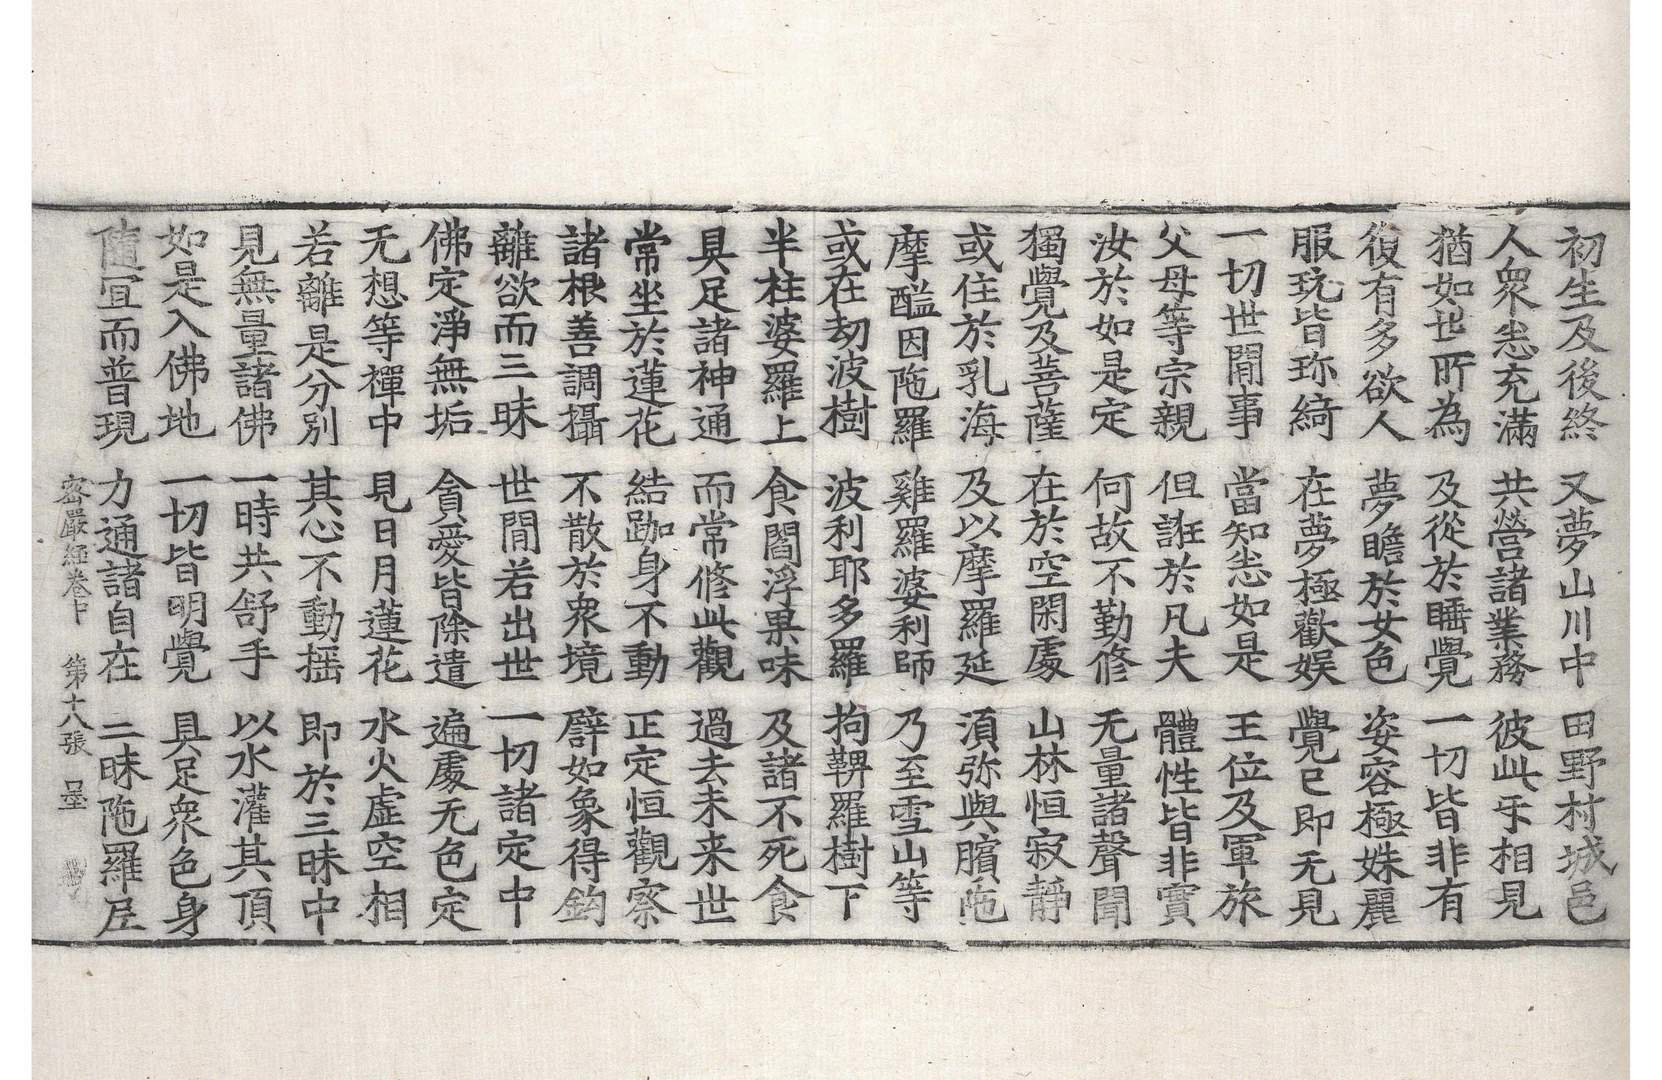 初生及後終 又夢山川中 田野村城邑
人衆悉充滿 共營諸業務 彼此乐相見
猶如世所為 及從於睡覺 一切皆非有
復有多欲人 夢瞻於女色 姿容極姝麗
服玩皆珎綺 在夢極歡娛 覺已即无見
一切世閒事 當知悉如是 王位及軍旅
父母等宗親 但誑於凡夫 體性皆非實
汝於如是定 何故不勤修 无量諸聲聞
獨覺及菩薩 在於空閑處 山林恒寂靜
或住於乳海 及以摩羅延 湏弥與臏陁
摩醯因陁羅 雞羅婆利師 乃至雪山等
或在劫波樹 波利耶多羅 拘鞞羅樹下
半柱婆羅上 食閻浮菓味 及諸不死食
具足諸神通 而常修此觀 過去未来世
常坐於蓮花 結跏身不動 正定恒觀察
諸根善調攝 不散於衆境 譬如象得鉤
離欲而三昧 世閒若出世 一切諸定中
佛定淨無垢 貪愛皆除遣 遍處无色定
无想等禪中 見日月蓮花 水火虛空相
若離是分別 其心不動揺 即於三昧中
見無量諸佛 一時共舒手 以水灌其頂
如是入佛地 一切皆明覺 具足衆色身
隨宜而普現 力通諸自在 三昧陁羅尼
密嚴經卷中 第十八張 量